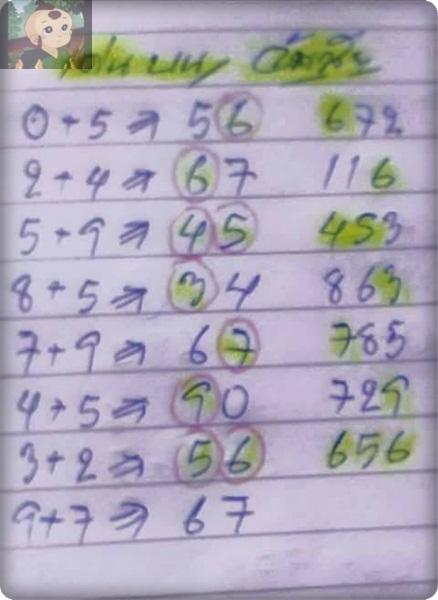 เด่นบน
0+5 ⇒ 56 672
2+4 ⇒ 67 116
5+9 ⇒ 45 453
8+5 ⇒ 34 863
7+9 ⇒ 67 785
4+5 ⇒ 90 729
3+2 ⇒ 56 656
9+7 ⇒ 67